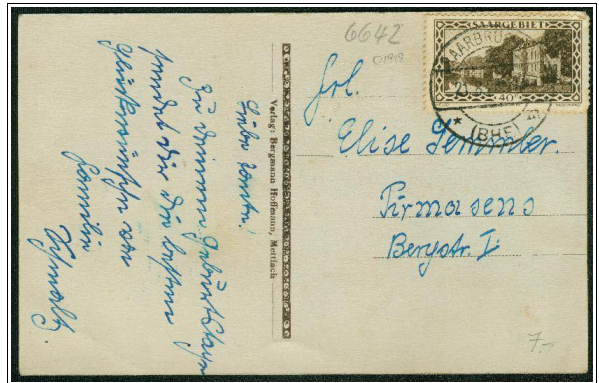 6642
SAARGEBIET
SAARBRÜ
40
(BHF)
Frl.
Elise Semmler.
Pirmasens
Bergstr. I
7.-
Verlag: Bergmann Hoffmann, Mettlach
Liebe Tante!
Zu Deinem Geburtstage
sendet Dir die besten
Glückwünsche von
Familie
Schmalz.